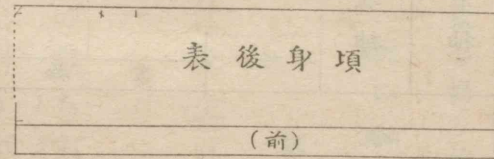 表後身頃
(前)